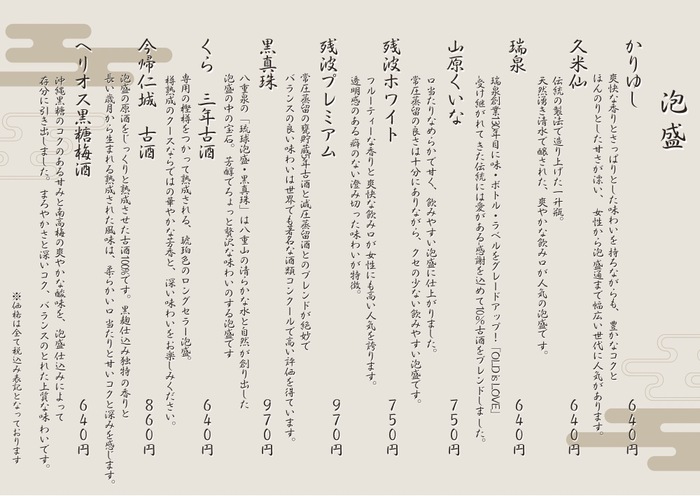 泡盛
かりゆし 640円
爽快な香りとさっぱりとした味わいを持ちながらも、豊かなコクと
ほんのりとした甘さが漂い、女性から泡盛通まで幅広い世代に人気があります。
久米仙 640円
伝統の製法で造り上げた一升瓶。
天然湧き清水で醸された、爽やかな飲み口が人気の泡盛です。
瑞泉 640円
瑞泉創業131年目に味・ボトル・ラベルをグレードアップ！「OLD is LOVE」
受け継がれてきた伝統には愛がある感謝を込めて10%古酒をブレンドしました。
山原くいな 750円
口当たりなめらかで甘く、飲みやすい泡盛に仕上がりました。
常圧蒸留の良さは十分にありながら、クセの少ない飲みやすい泡盛です。
残波ホワイト 750円
フルーティーな香りと爽快な飲み口が女性にも高い人気を誇ります。
透明感のある癖のない澄み切った味わいが特徴。
残波プレミアム 970円
常圧蒸留の甕貯蔵3年古酒と減圧蒸留酒とのブレンドが絶妙で
バランスの良い味わいは世界でも著名な酒類コンクールで高い評価を得ています。
黒真珠 970円
八重泉の「琉球泡盛・黒真珠」は八重山の清らかな水と自然が創り出した
泡盛の中の宝石。芳醇でちょっと贅沢な味わいのする泡盛です
くら 三年古酒 640円
専用の樫樽をつかって熟成される、琥珀色のロングセラー泡盛。
樽熟成のクースならではの華やかな芳香と、深い味わいをお楽しみください。
今帰仁城 古酒 860円
泡盛の原酒をじっくりと熟成させた古酒100%です。黒麹仕込み独特の香りと
長い歳月から生まれる熟成された風味は、柔らかい口当たりと甘いコクと深みを感じます。
ヘリオス黒糖梅酒 640円
沖縄黒糖のコクのある甘みと南高梅の爽やかな酸味を、泡盛仕込みによって
存分に引き出しました。まろやかさと深いコク、バランスのとれた上質な味わいです。
※価格は全て税込み表記となっております